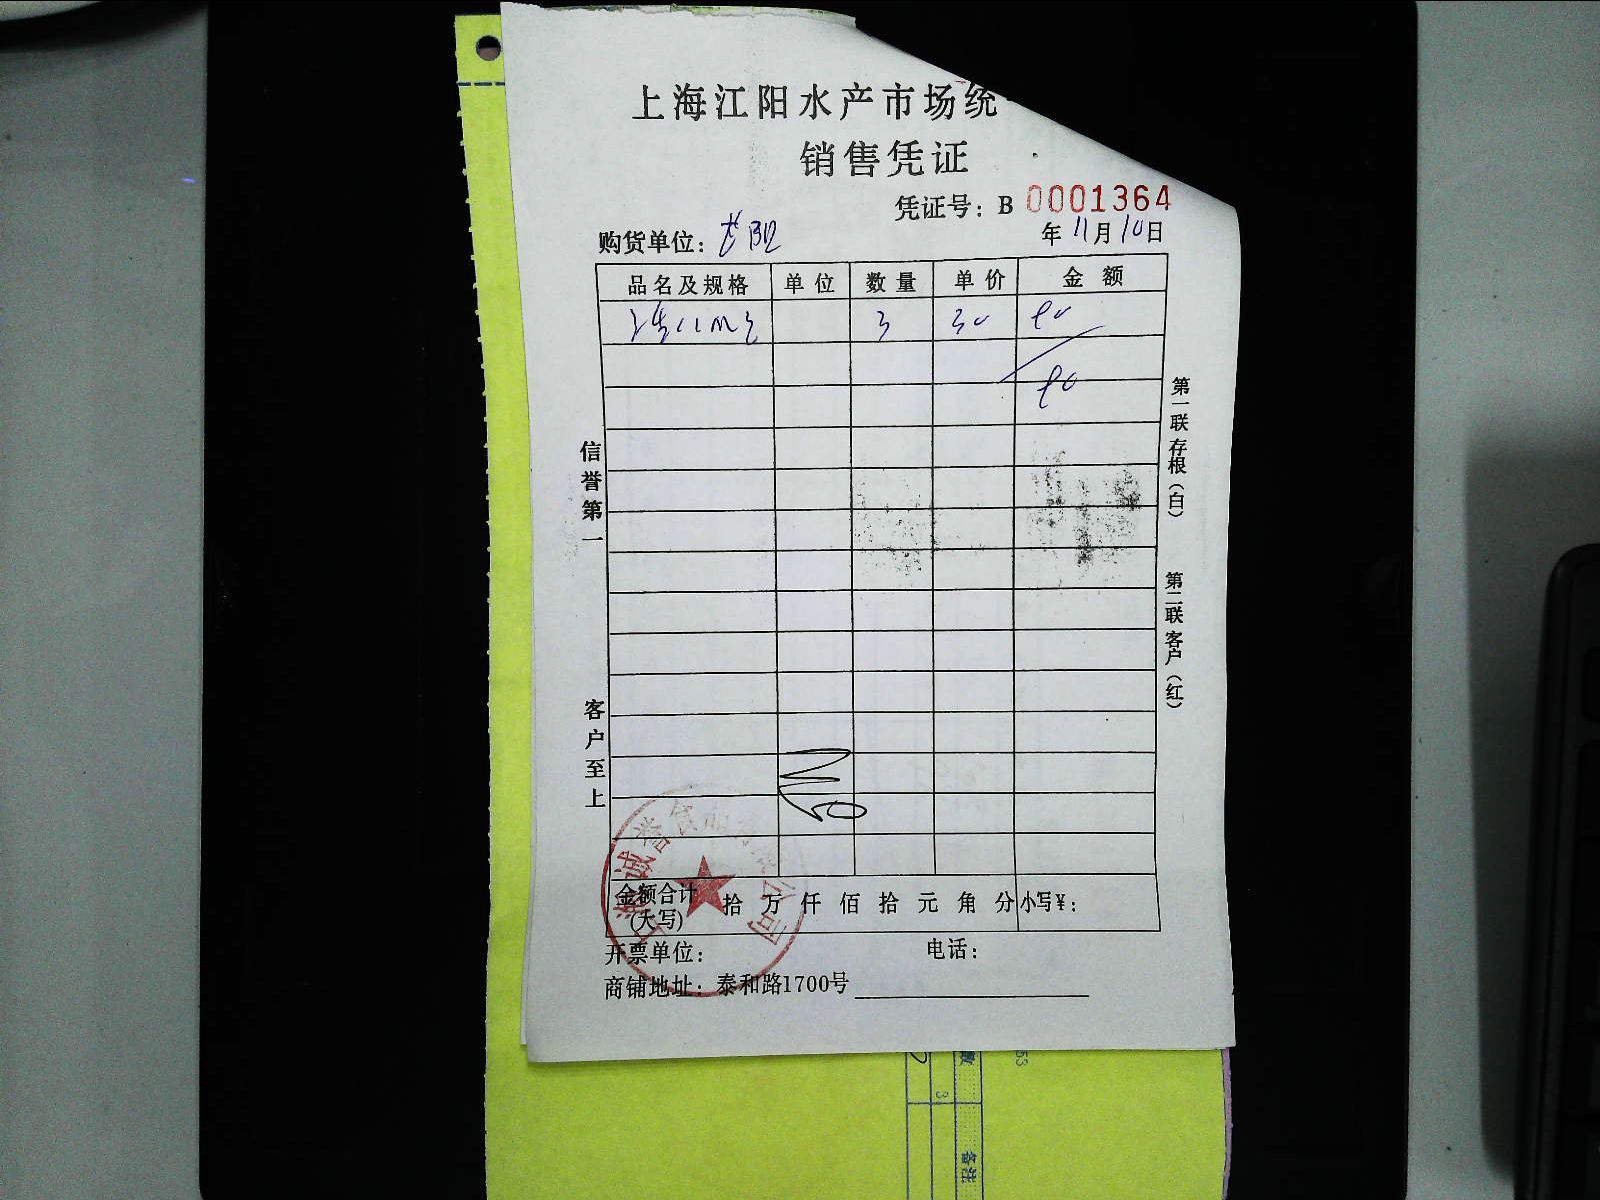 上海江阳水产市场统
销售凭证
凭证号：B 0001364
购货单位：
年 11月10日
品名及规格 单位 数量 单价 金额
3 30 90
90
信誉第一
客户至上
第一联存根（白）
第二联客户（红）
金额合计(大写) 拾 万 仟 佰 拾 元 角 分 小写¥：
开票单位： 电话：
商铺地址：泰和路1700号
53
3
备注